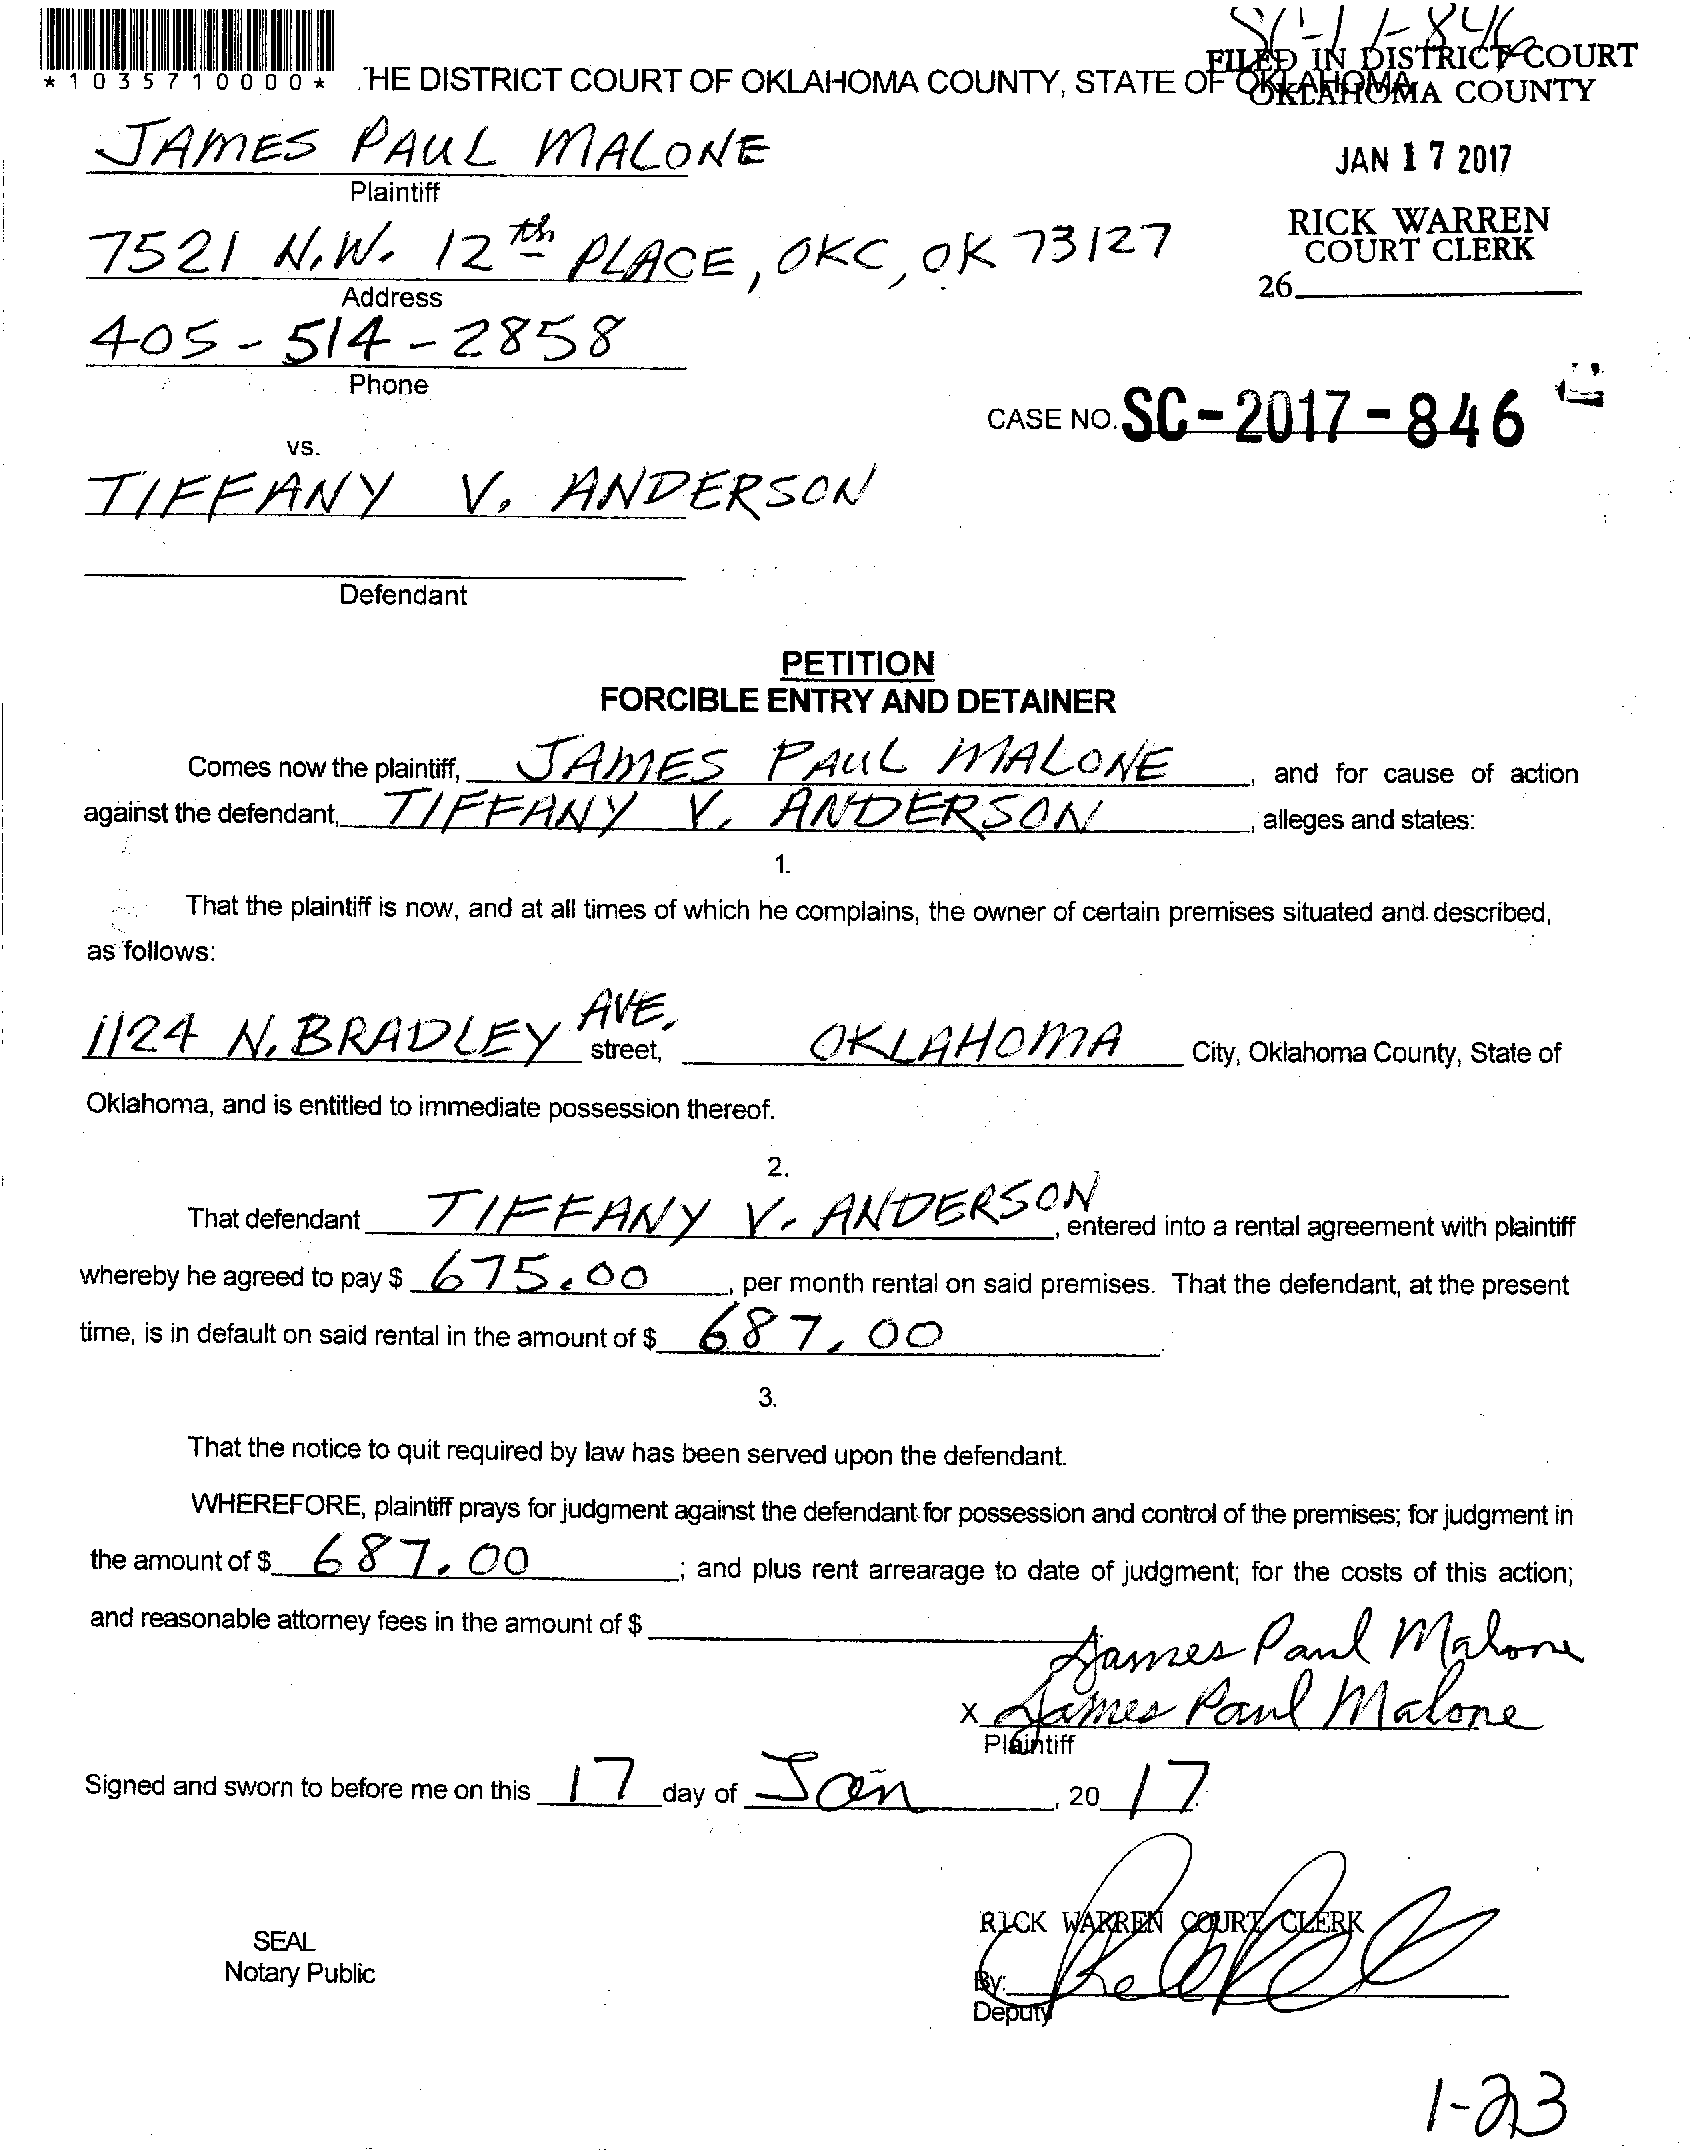 SC-17-846
FILED IN DISTRICT COURT
OKLAHOMA COUNTY
*1035710000* THE DISTRICT COURT OF OKLAHOMA COUNTY, STATE OF OKLAHOMA
JAMES PAUL MALONE
JAN 17 2017
Plaintiff
7521 N.W. 12th PLACE, OKC, OK 73127
RICK WARREN
COURT CLERK
Address
26
405-514-2858
Phone
CASE NO. SC-2017-846
vs.
TIFFANY V. ANDERSON
Defendant
PETITION
FORCIBLE ENTRY AND DETAINER
Comes now the plaintiff, JAMES PAUL MALONE, and for cause of action
against the defendant, TIFFANY V. ANDERSON, alleges and states:
1.
That the plaintiff is now, and at all times of which he complains, the owner of certain premises situated and described,
as follows:
1124 N. BRADLEY AVE. street, OKLAHOMA City, Oklahoma County, State of
Oklahoma, and is entitled to immediate possession thereof.
2.
That defendant TIFFANY V. ANDERSON, entered into a rental agreement with plaintiff
whereby he agreed to pay $ 675.00, per month rental on said premises. That the defendant, at the present
time, is in default on said rental in the amount of $ 687.00.
3.
That the notice to quit required by law has been served upon the defendant.
WHEREFORE, plaintiff prays for judgment against the defendant for possession and control of the premises; for judgment in
the amount of $ 687.00; and plus rent arrearage to date of judgment; for the costs of this action;
and reasonable attorney fees in the amount of $
James Paul Malone
x James Paul Malone
Plaintiff
Signed and sworn to before me on this 17 day of Jan, 20 17
RICK WARREN COURT CLERK
SEAL
Notary Public
By:
Deputy
1-23